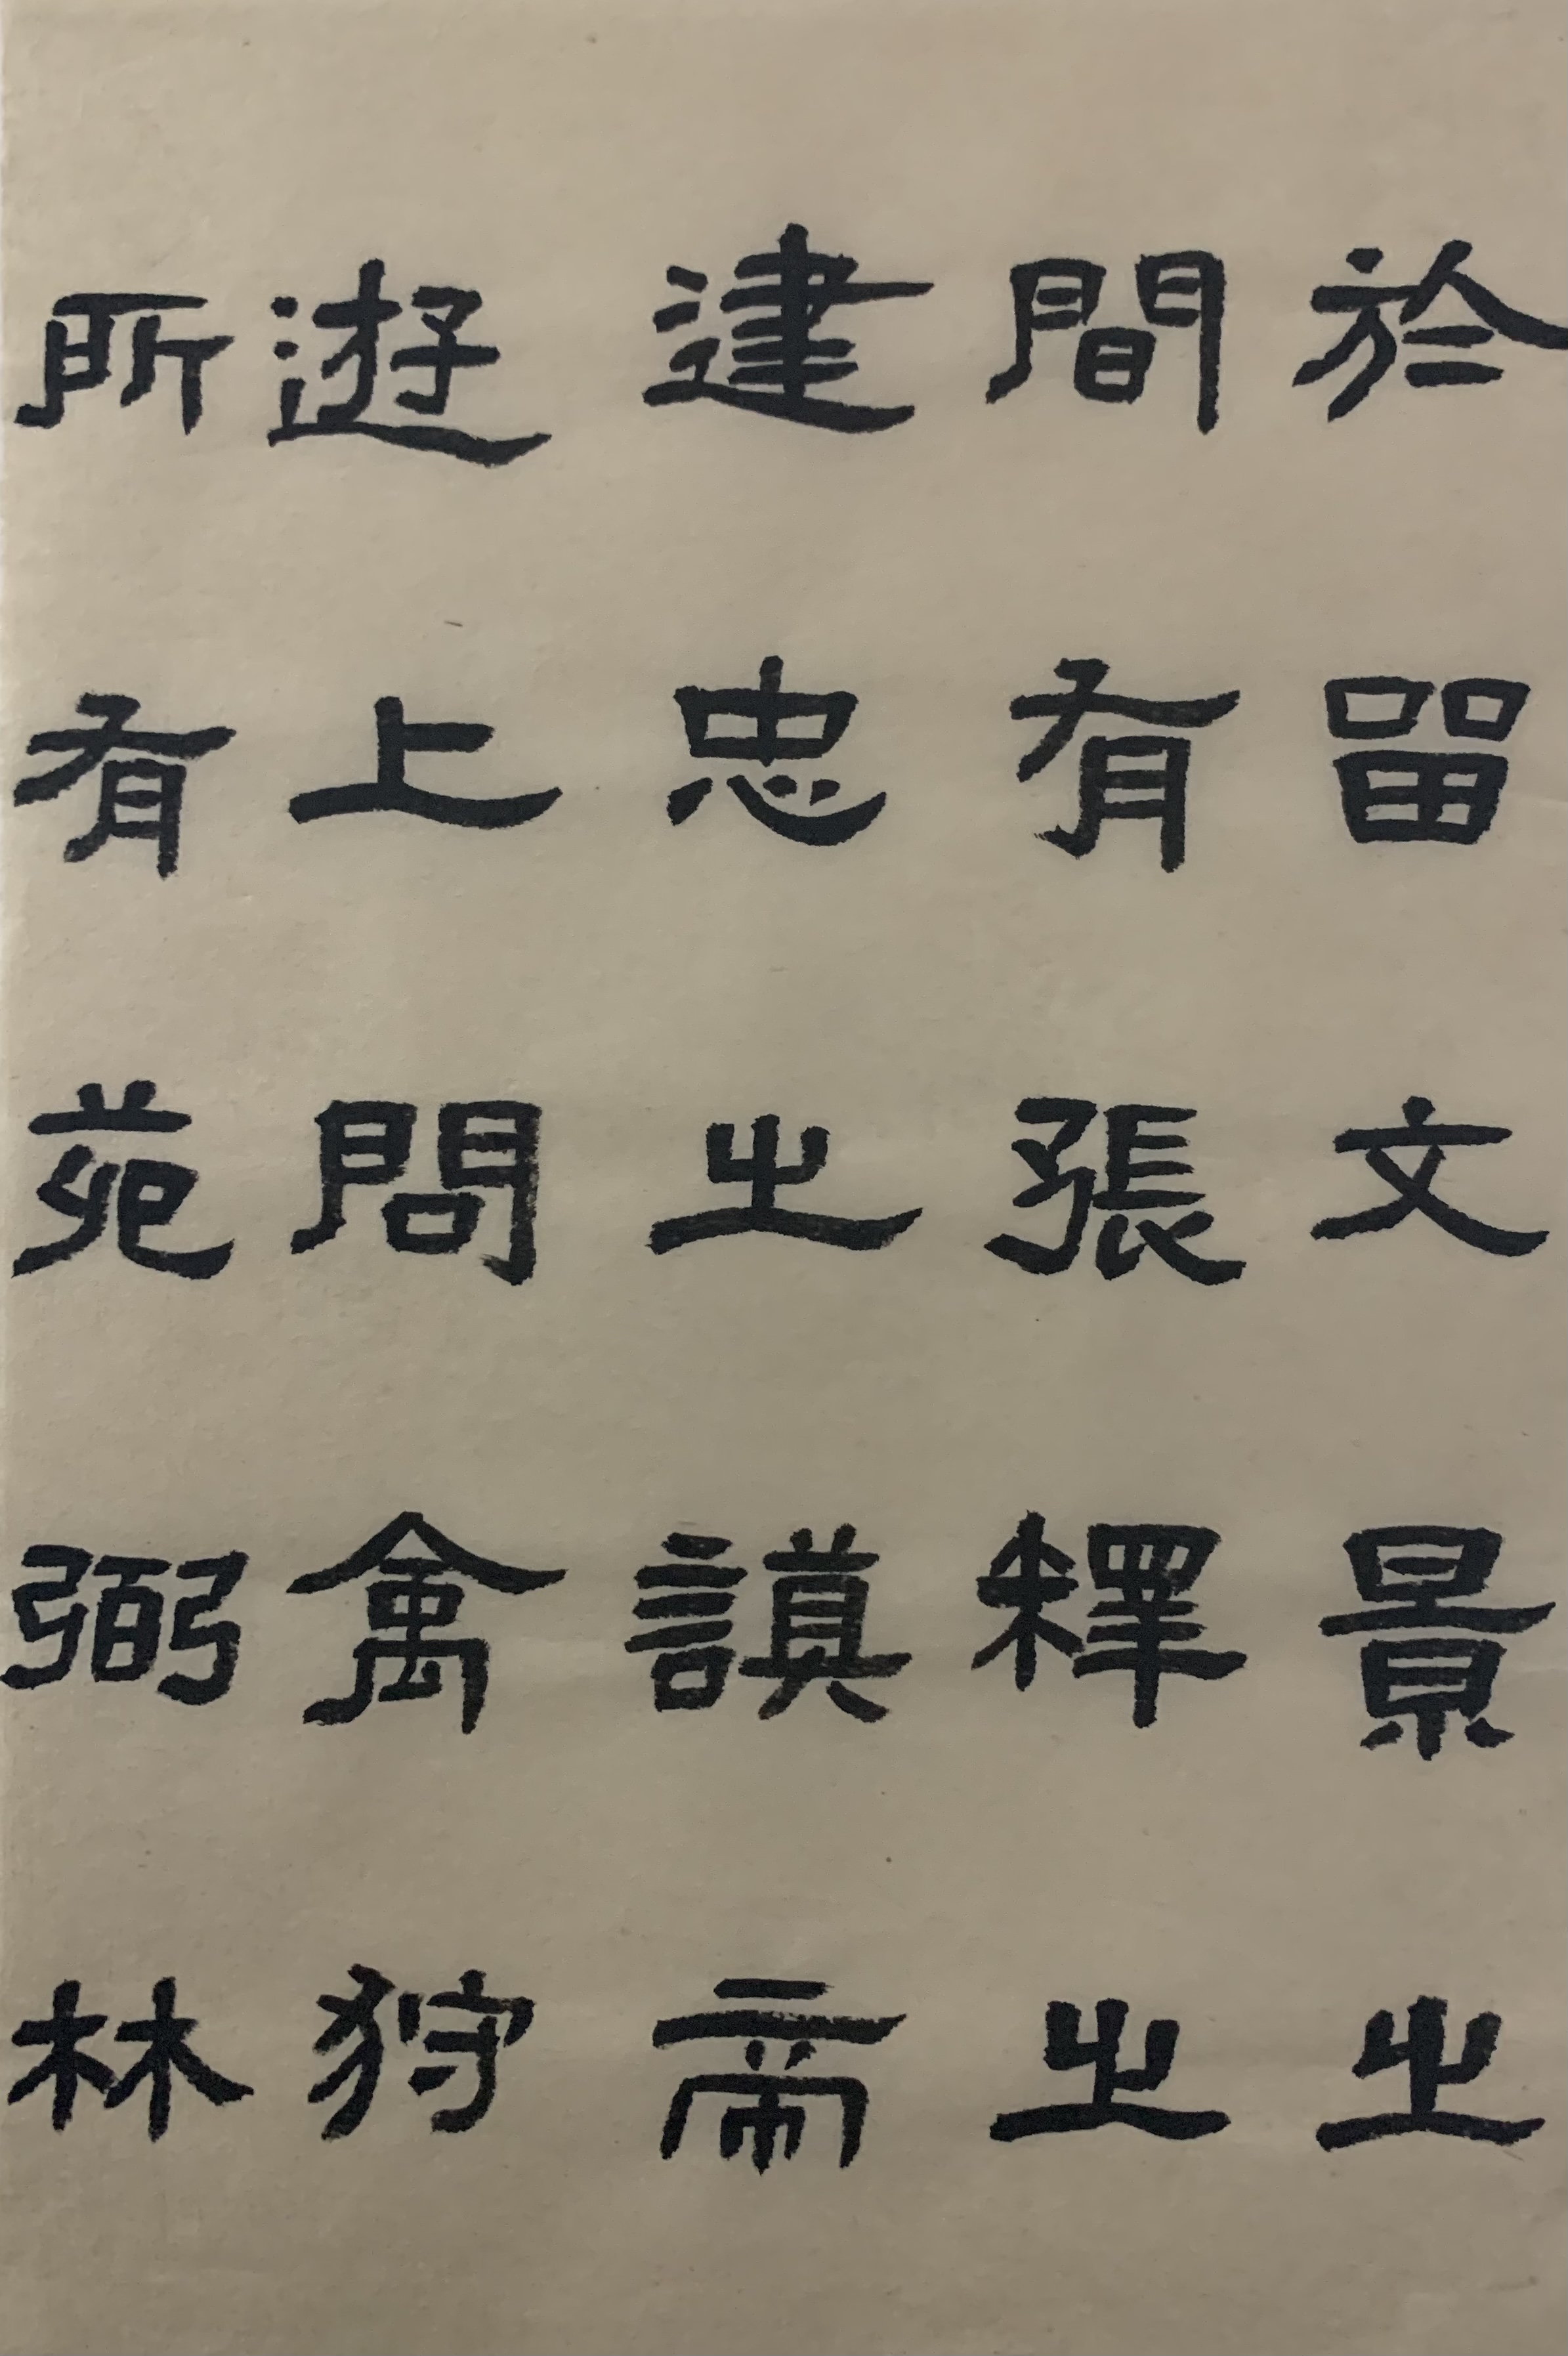 於留文景之
間有張釋之
建忠之謨帝
遊上問禽狩
所有苑弼林